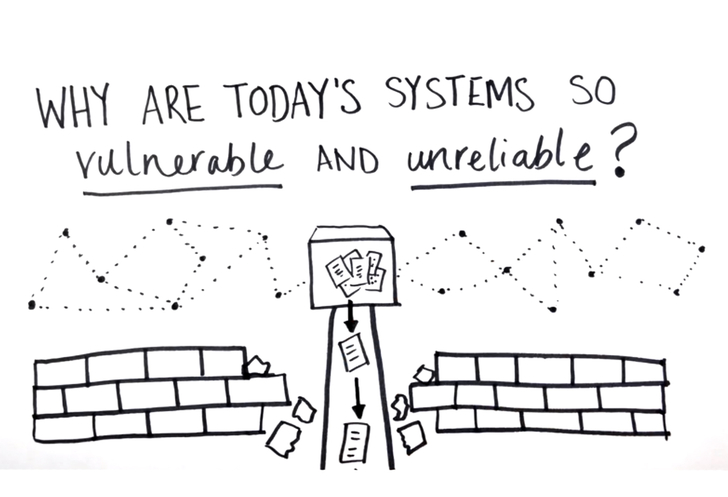 WHY ARE TODAY'S SYSTEMS SO
vulnerable AND unreliable?